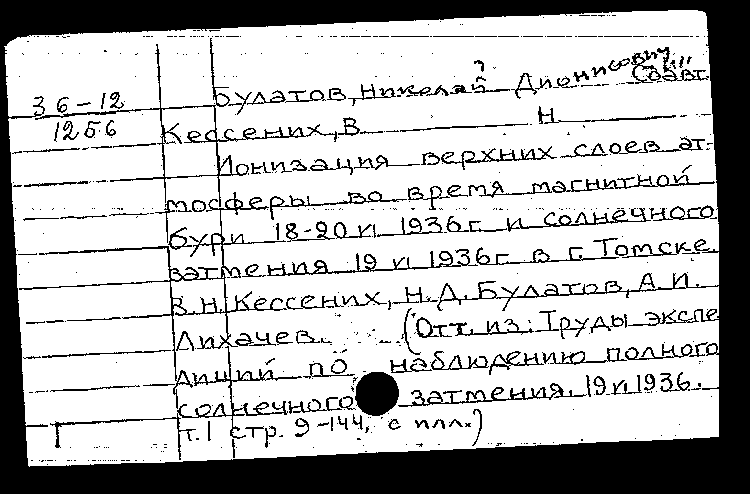 36-12
1256
Булатов, Николай Дионисович Соавт.
Кессених, В. Н.
Ионизация верхних слоев ат-
мосферы во время магнитной
бури 18-20 VI 1936 г. и солнечного
затмения 19 VI 1936 г в г. Томске.
В.Н. Кессених, Н.Д. Булатов, А.И.
Лихачев. (Отт. из: Труды экспе
диций по наблюдению полного
солнечного затмения. 19 VI 1936.
т. I стр. 9-144, с илл.)